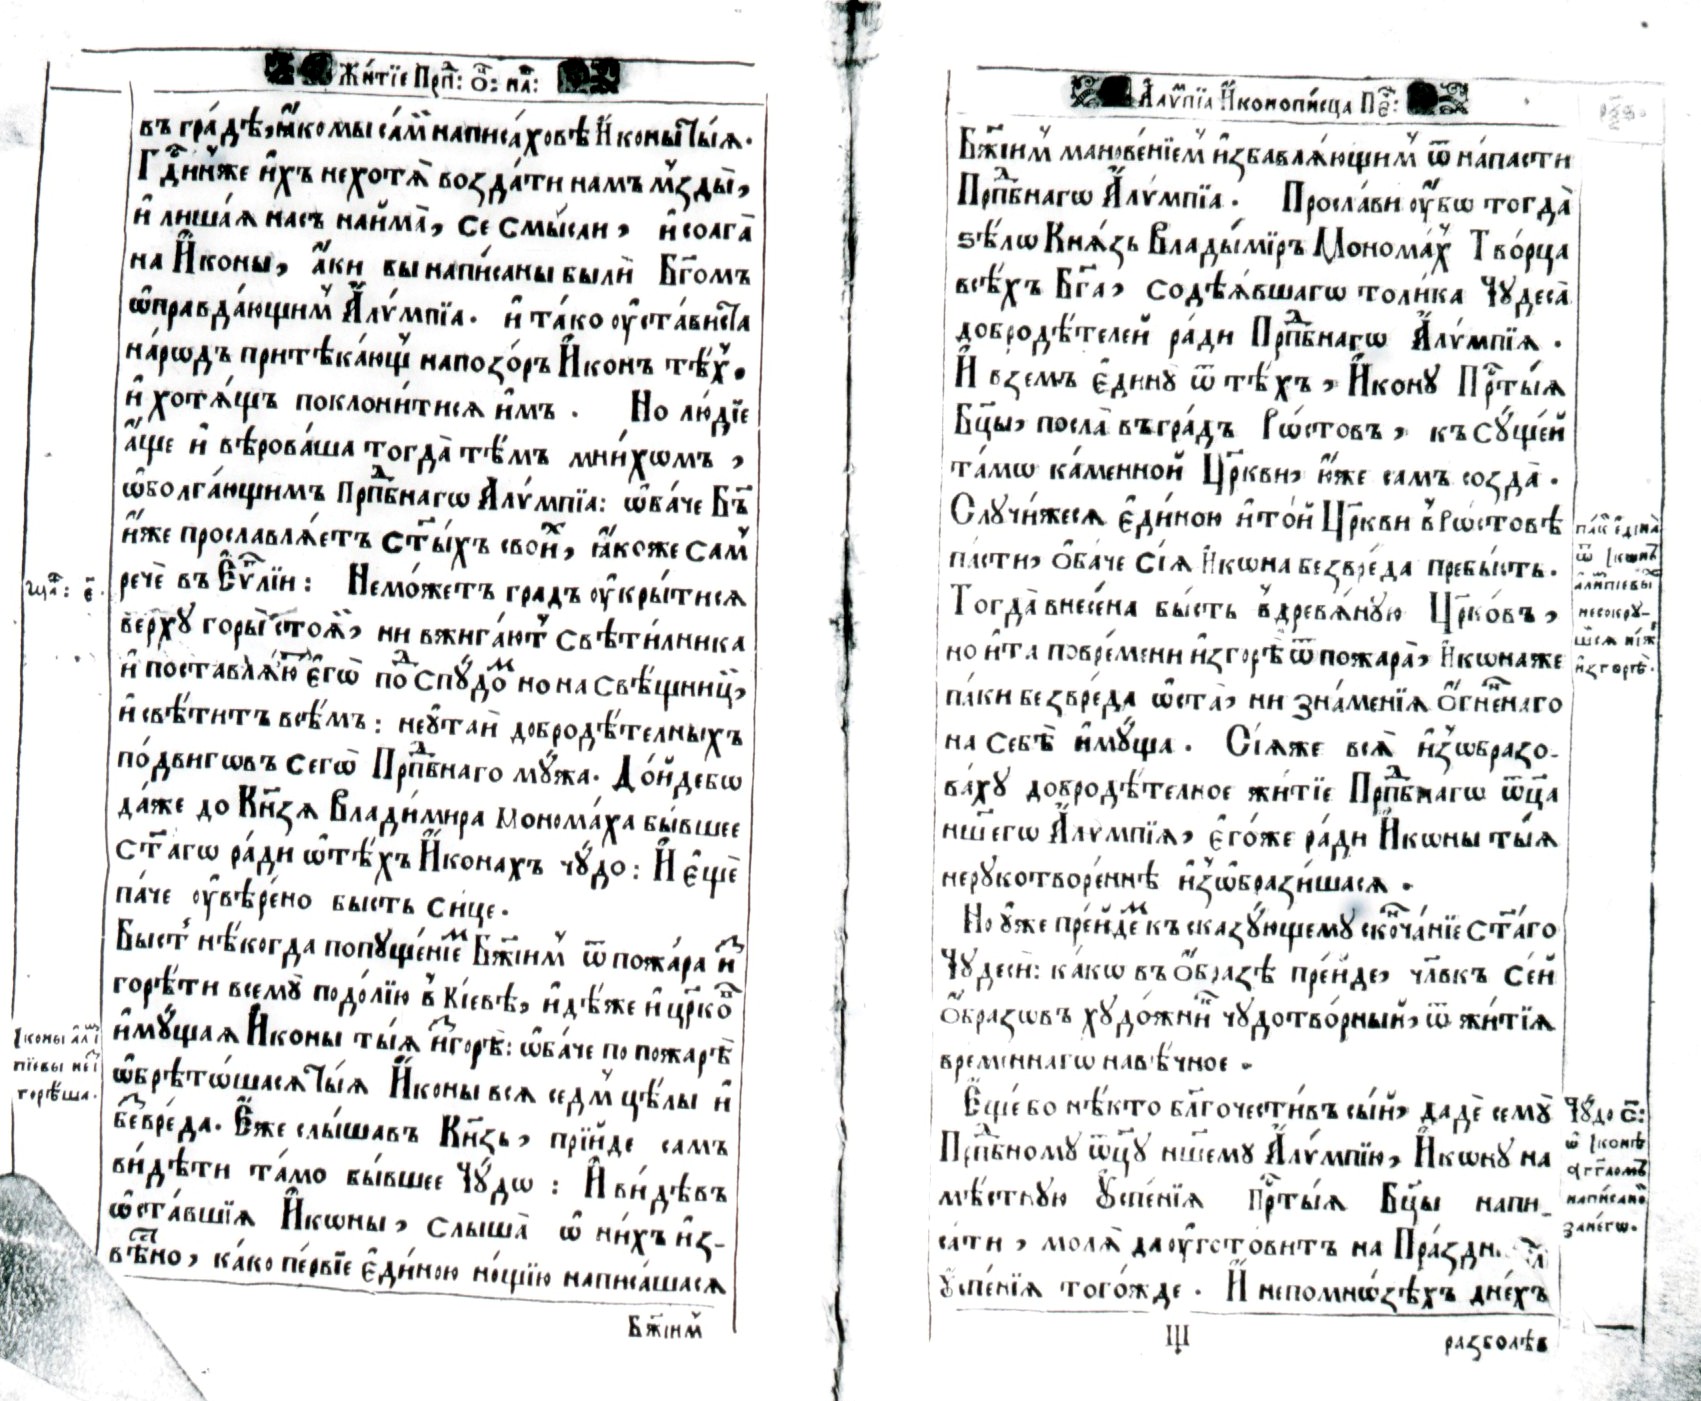 Жи́тїе Прпⷣ: Ѻ҃: на́:
въ гра́дѣ, ꙗ҆́кѡ мы са́мѝ написа́ховѣ И҆ко́ны ты́ѧ.
Гдⷭ҇и́нꙋже и҆́хъ не хотѧ̀ возда́ти намъ мзды̀,
и҆ лиша́ѧ насъ найма̀, се смы́сли, и҆ солга̀
на И҆́коны, а҆́ки бы напи́саны были̑ Бг҃омъ
ѡ҆правда́ющимъ А҆лѵ́мпїа. и҆ та́ко ᲂу҆ста́виста
на́рѡдъ притѣка́ющъ на позо́ръ И҆ко́нъ тѣ́хъ.
и҆ хотѧ́щъ поклони́тисѧ и҆̀мъ. Но лю́дїе
а҆́ще и҆ вѣ́роваша тогда̀ тѣ́мъ мни́хѡмъ,
ѡ҆болга́ющимъ Прпⷣбнагѡ А҆лѵ́мпїа: ѡ҆ба́че Бг҃ъ
и҆́же прославлѧ́етъ ст҃ы́хъ свои́хъ, ꙗ҆́коже са́мъ
речѐ въ Е҆ѵⷢ҇лїи: Не мо́жетъ градъ ᲂу҆кры́тисѧ
верхꙋ̀ горы̀ стоѧ̀, ни вжига́ютъ свѣти́лника
и҆ поставлѧ́ютъ є҆гѡ̀ под̾ спꙋ́домъ но на свѣ́щницѣ,
и҆ свѣ́титъ всѣ́мъ: не ᲂу҆таи̑ добродѣ́телныхъ
по́двигѡвъ сегѡ̀ Прпⷣбнаго мꙋ́жа. До́йде бѡ
да́же до Кн҃зѧ Влади́мира Монома́ха бы́вшее
ст҃а́гѡ ра́ди ѡ҆ тѣ́хъ И҆ко́нахъ чꙋ́до: И҆ є҆щѐ
па́че ᲂу҆вѣ́рено бысть си́це.
Бысть нѣ́когда попꙋще́нїемъ Бж҃їимъ ѿ пожа́ра и҆з̾
горѣ́ти всемꙋ̀ подо́лїю в̾ Кі́евѣ, и҆дѣ́же и҆ цр҃ковь
и҆мꙋ́щаѧ И҆ко́ны ты́ѧ и҆згорѣ̀: ѡ҆ба́че по пожарѣ̀
ѡ҆брѣто́шасѧ ты́ѧ И҆ко́ны всѧ седмь цѣ́лы и҆
без̾ вре́да. Е҆́же слы́шавъ Кн҃зь, прїи́де самъ
ви́дѣти та́мо бы́вшее Чꙋ́дѡ: И҆ ви́дѣвъ
ѡ҆ста́вшїѧ И҆кѡ́ны, слы́ша ѡ҆ ни́хъ и҆з-
вѣ́стно, ка́ко пе́рвїе є҆ди́ною но́щїю написа́шасѧ
Бж҃їимъ
Ща҃: є҃.
Іконы алі
пїевы неі
горѣша.
А҆лѵ́мпїа И҆конопи́сца Пе:
Бж҃їимъ манове́нїемъ и҆збавлѧ́ющимъ ѿ на́пасти
Прпⷣбнагѡ А҆лѵ́мпїа. Просла́ви ᲂу҆́бѡ тогда̀
ѕѣлѡ Кнѧ́зь Влады́мїръ Монома́хъ Тво́рца
всѣ́хъ Бг҃а, содѣѧ́вшагѡ толи́ка Чꙋдеса̀
добродѣ́телей ра́ди Прпⷣбнагѡ А҆лѵ́мпїѧ.
И҆ взе́мъ є҆ди́нꙋ ѿ тѣ́хъ, И҆ко́нꙋ Прⷭ҇ты́ѧ
Бцⷣы, посла̀ въ гра́дъ Рѡ́стовъ, къ сꙋ́щей
та́мѡ ка́менной Цр҃кви, ю҆́же самъ созда̀.
Слꙋчи́жесѧ є҆ди́ною и҆ то́й Цр҃кви в̾ Рѡ́стовѣ
па́сти, ѻ҆ба́че сїѧ̀ И҆кѡ́на без̾ вре́да пребы́сть.
Тогда̀ внесе́на бы́сть в̾ древѧ́нꙋю Цр҃ко́въ,
но и҆ та по вре́мени и҆згорѣ̀ ѿ пожа́ра, И҆кѡ́на же
па́ки без̾ вре́да ѡ҆ста̀, ни зна́менїѧ ѻ҆́гненнаго
на себѣ̀ и҆мꙋ́ща. Сїѧ́же всѧ̀ и҆з̾ѡбразо-
ва́хꙋ добродѣ́телное жи́тїе Прпⷣбнагѡ ѿц҃а
нш҃егѡ А҆лѵмпїѧ, є҆гѡ́же ра́ди И҆кѡ́ны ты́ѧ
нерꙋкотворе́ннѣ и҆з̾ѡбрази́шасѧ.
Но ᲂу҆́же пре́йдемъ къ сказꙋ́ющемꙋ сконча́нїе ст҃а́го
Чꙋдеси̑: ка́кѡ въ ѻ҆́бразѣ пре́йде, чл҃вкъ се́й
ѻ҆́бразѡвъ хꙋдо́жникъ чꙋдотво́рный, ѿ жи́тїѧ
вре́меннагѡ на вѣ́чное.
Е҆ще́ бо нѣ́кто бл҃гочести́въ сы́й, дадѐ семꙋ̀
Прпⷣбномꙋ ѿц҃ꙋ нш҃емꙋ А҆лѵ́мпїю, И҆кѡ́нꙋ на
мѣ́стнꙋю ᲂу҆спе́нїѧ Прⷭ҇ты́ѧ Бцⷣы напи-
са́ти, молѧ̀ да ᲂу҆гото́витъ на Пра́здн.
ᲂу҆спе́нїѧ того́жде. И҆ не по мно́зѣхъ дне́хъ
разболѣв
па́к є҆ди́на
ѿ Ікѡнъ
алимпіевы
несокрꙋ-
ши́сѧ ни́же
и҆згорѣ̀.
Чꙋ́до ѕ҃:
ѡ҆ Іконѣ
агг҃ломъ
написано
за него.